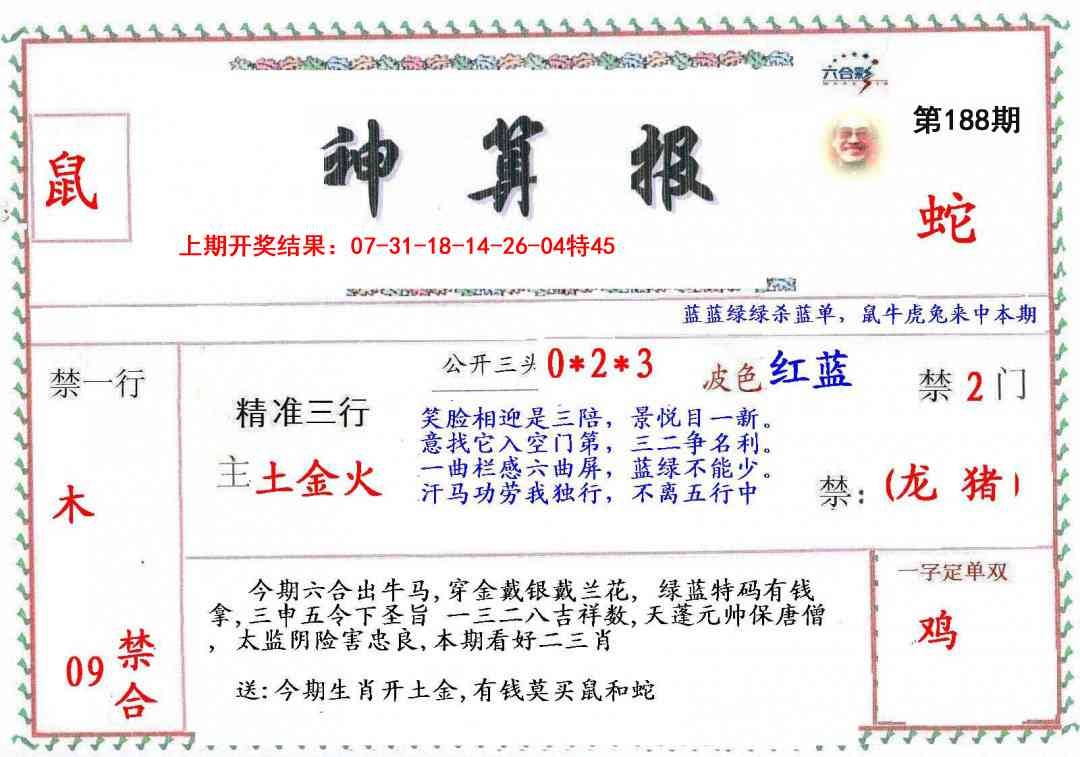 六合彩
第188期
鼠
神算报
蛇
上期开奖结果：07-31-18-14-26-04特45
蓝蓝绿绿杀蓝单，鼠牛虎兔来中本期
禁一行
公开三头 0*2*3
波色 红蓝
禁 2 门
精准三行
笑脸相迎是三陪，景悦目一新。
意找它入空门第，三二争名利。
一曲栏感六曲屏，蓝绿不能少。
汗马功劳我独行，不离五行中
主 土金火
禁：(龙 猪)
木
一字定单双
今期六合出牛马,穿金戴银戴兰花，绿蓝特码有钱
拿,三申五令下圣旨 一三二八吉祥数,天蓬元帅保唐僧
，太监阴险害忠良,本期看好二三肖
鸡
09 禁合
送:今期生肖开土金,有钱莫买鼠和蛇